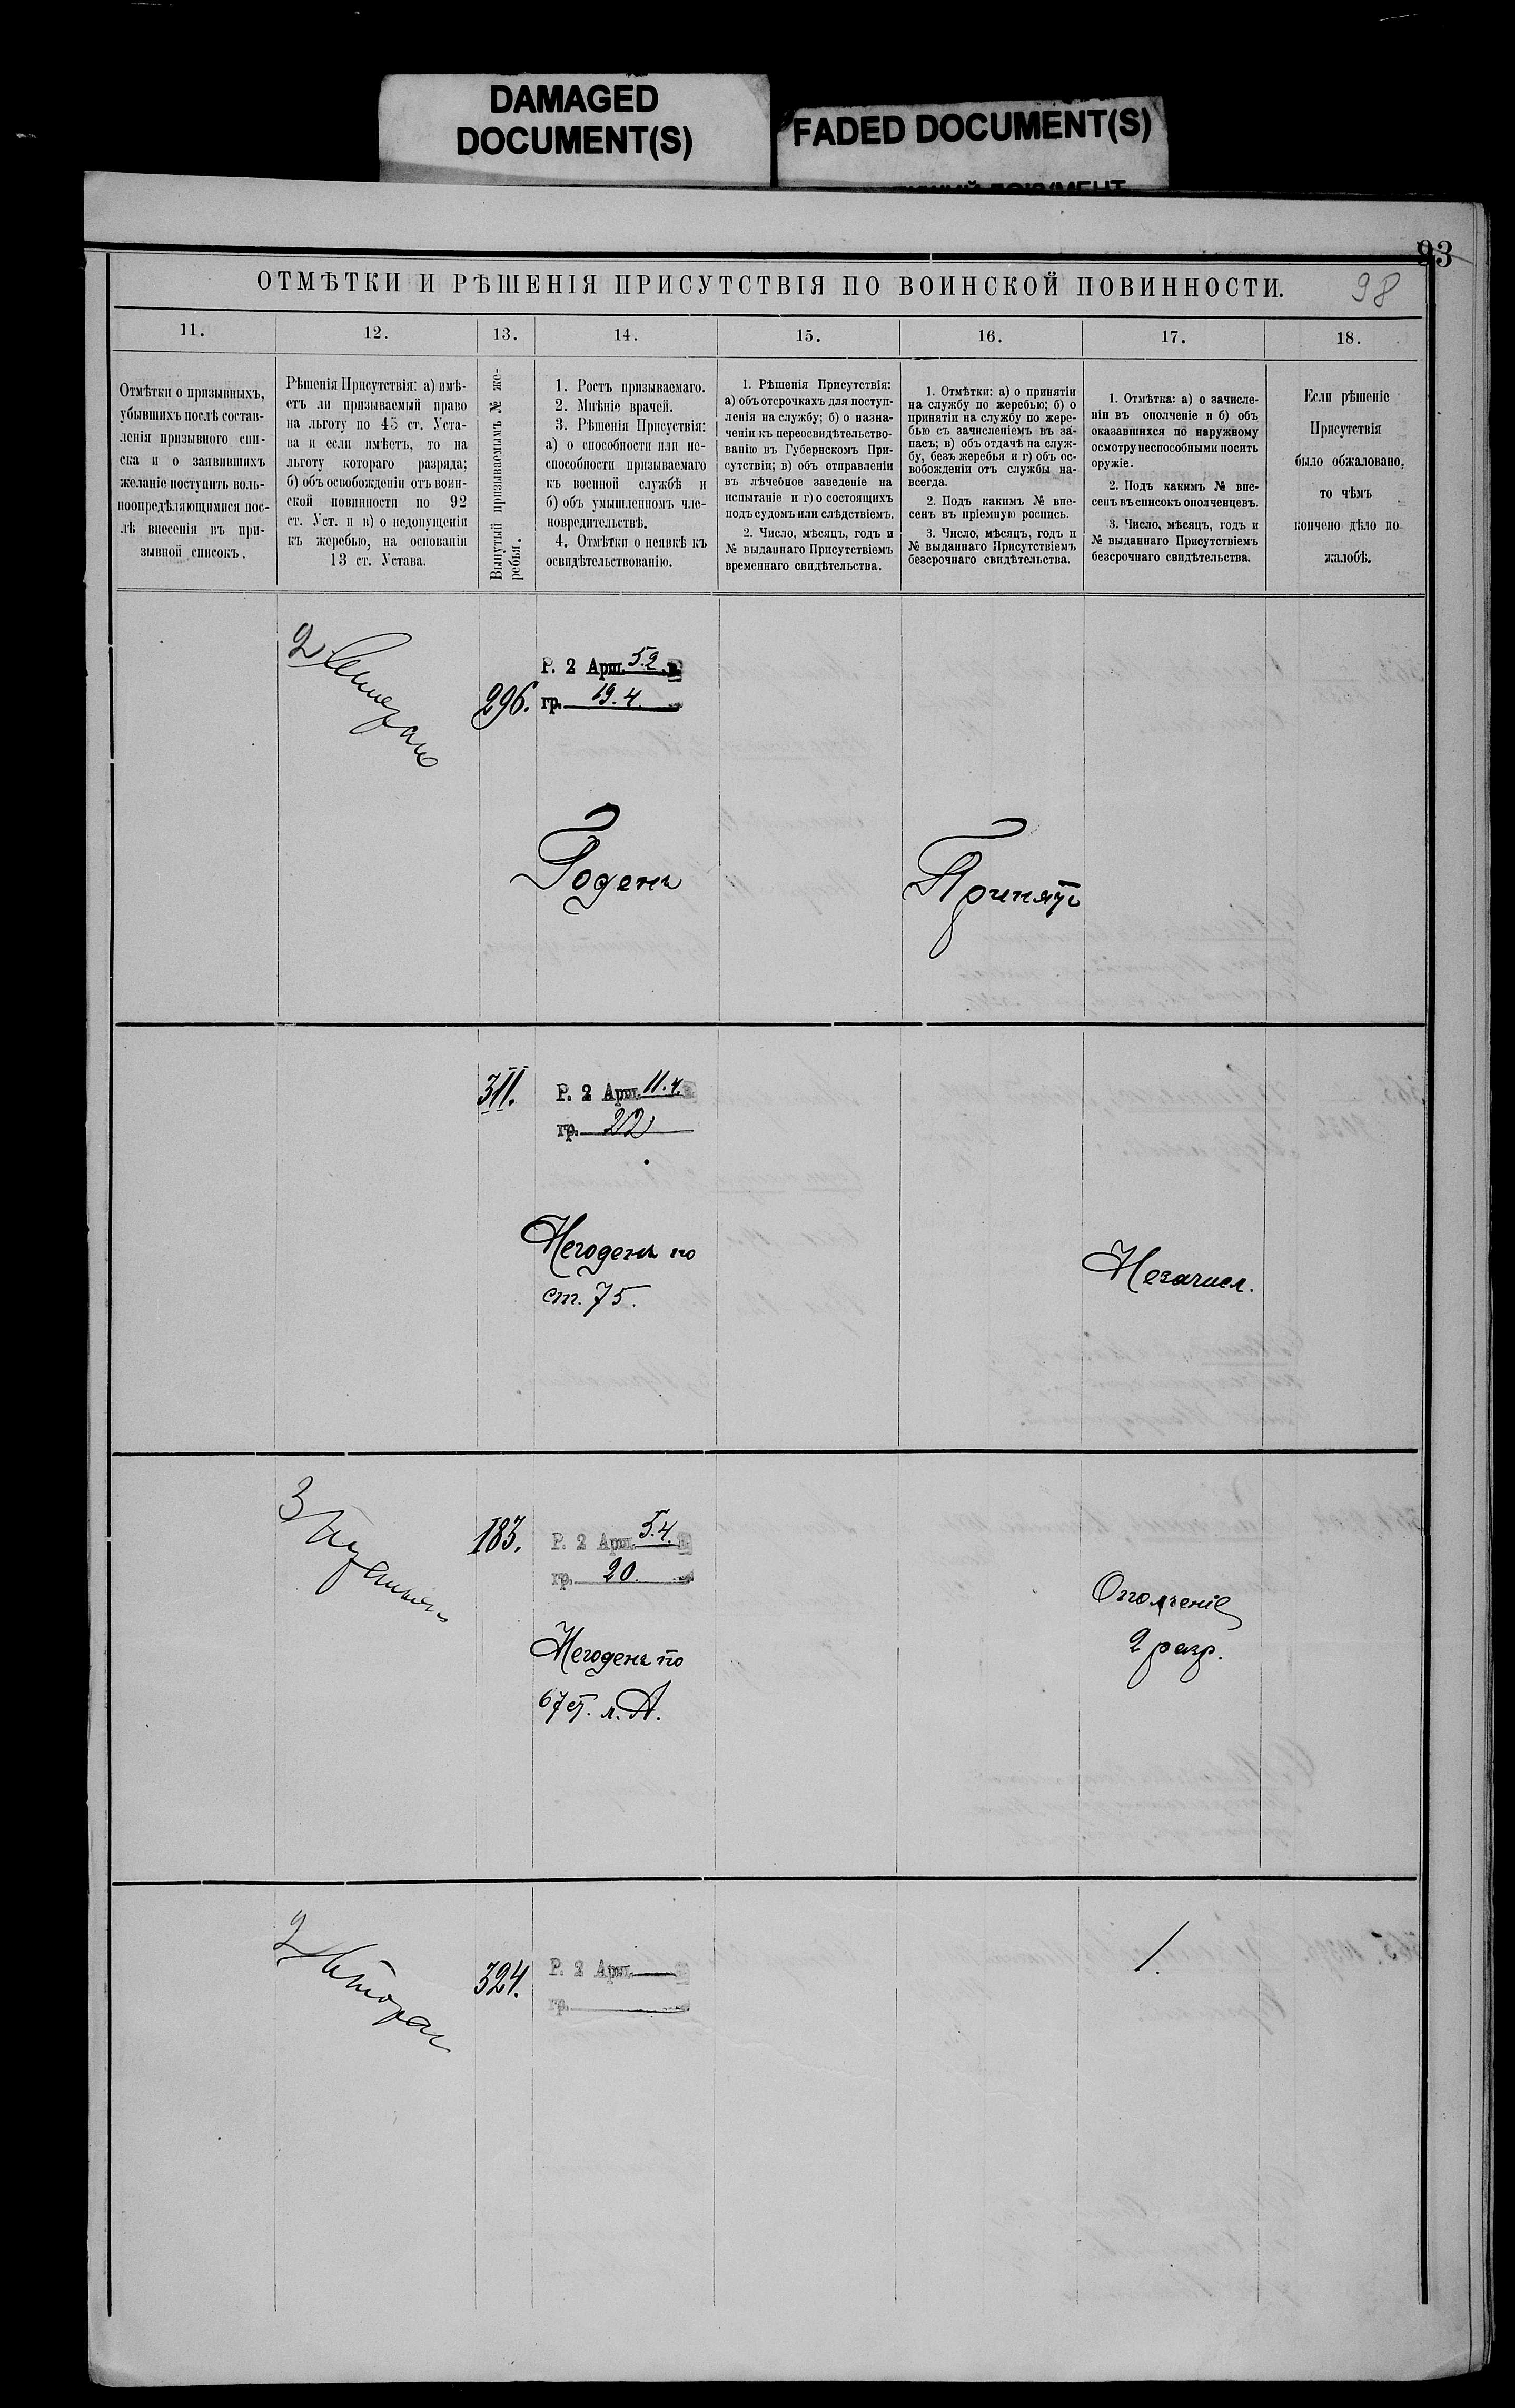 DAMAGED
DOCUMENT(S)
FADED DOCUMENT(S)
93
ОТМѢТКИ И РѢШЕНІЯ ПРИСУТСТВІЯ ПО ВОИНСКОЙ ПОВИННОСТИ.
98
11.
12.
13.
14.
15.
16.
17.
18.
Отмѣтки о призывныхъ,
убывшихъ послѣ состав-
ленія призывного спи-
ска и о заявившихъ
желаніе поступить воль-
ноопредѣляющимися пос-
лѣ внесенія въ при-
зывной списокъ.
Рѣшенія Присутствія: а) имѣ-
етъ ли призываемый право
на льготу по 45 ст. Уста-
ва и если имѣетъ, то на
льготу котораго разряда;
б) объ освобожденіи отъ воин-
ской повинности по 92
ст. Уст. и в) о недопущеніи
къ жеребью, на основаніи
13 ст. Устава.
Вынутый призываемымъ № же-
ребья.
1. Ростъ призываемаго.
2. Мнѣніе врачей.
3. Рѣшенія Присуствія:
а) о способности или не-
способности призываемаго
къ военной службѣ и
б) объ умышленномъ чле-
новредительствѣ.
4. Отмѣтки о неявкѣ къ
освидѣтельствованію.
1. Рѣшенія Присутствія:
а) объ отсрочкахъ для поступ-
ленія на службу; б) о назна-
ченіи къ переосвидѣтельство-
ванію въ Губернскомъ При-
сутствіи; в) объ отправленіи
въ лѣчебное заведеніе на
испытаніе и г) о состоящихъ
подъ судомъ или слѣдствіемъ.
2. Число, мѣсяцъ, годъ и
№ выданнаго Присутствіемъ
временнаго свидѣтельства.
1. Отмѣтки: а) о принятіи
на службу по жеребью; б) о
принятіи на службу по жере-
бью съ зачисленіемъ въ за-
пасъ; в) объ отдачѣ на служ-
бу, безъ жеребья и г) объ ос-
вобожденіи отъ службы на-
всегда.
2. Подъ какимъ № вне-
сенъ въ пріемную роспись.
3. Число, мѣсяцъ, годъ и
№ выданнаго Присутствіемъ
безсрочнаго свидѣтельства.
1. Отмѣтка: а) о зачисле-
ніи въ ополченіе и б) объ
оказавшихся по наружному
осмотру неспособными носить
оружіе.
2. Подъ какимъ № вне-
сенъ въ списокъ ополченцевъ.
3. Число, мѣсяцъ, годъ и
№ выданнаго Присутствіемъ
безсрочнаго свидѣтельства.
Если рѣшеніе
Присутствія
было обжаловано,
то чѣмъ
кончено дѣло по
жалобѣ.
2
296.
Р. 2 Арш. 5.2 в
гр. 19.4.
Годенъ
Принятъ
311.
Р. 2 Арш. 11.4. в
гр. 22
Негоденъ по
ст. 75.
Незачисл.
3
183.
Р. 2 Арш. 5.4. в
гр. 20
Негоденъ по
67 ст. л. А.
Ополченіе
2 разр.
2
324.
Р. 2 Арш. в
гр.
1.